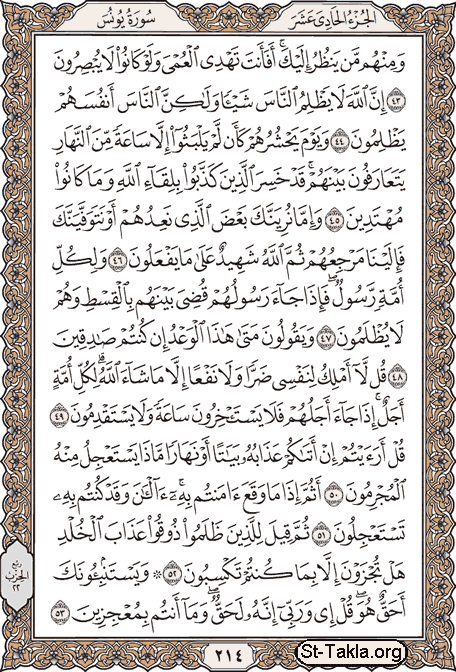 سُورَةُ يُونُسَ
الجُزْءُ الحَادِيَ عَشَرَ
وَمِنْهُم مَّن يَنظُرُ إِلَيْكَ ۚ أَفَأَنتَ تَهْدِى ٱلْعُمْىَ وَلَوْ كَانُوا۟ لَا يُبْصِرُونَ
﴿٤٣﴾ إِنَّ ٱللَّهَ لَا يَظْلِمُ ٱلنَّاسَ شَيْـًٔا وَلَـٰكِنَّ ٱلنَّاسَ أَنفُسَهُمْ
يَظْلِمُونَ ﴿٤٤﴾ وَيَوْمَ يَحْشُرُهُمْ كَأَن لَّمْ يَلْبَثُوٓا۟ إِلَّا سَاعَةً مِّنَ ٱلنَّهَارِ
يَتَعَارَفُونَ بَيْنَهُمْ ۚ قَدْ خَسِرَ ٱلَّذِينَ كَذَّبُوا۟ بِلِقَآءِ ٱللَّهِ وَمَا كَانُوا۟
مُهْتَدِينَ ﴿٤٥﴾ وَإِمَّا نُرِيَنَّكَ بَعْضَ ٱلَّذِى نَعِدُهُمْ أَوْ نَتَوَفَّيَنَّكَ
فَإِلَيْنَا مَرْجِعُهُمْ ثُمَّ ٱللَّهُ شَهِيدٌ عَلَىٰ مَا يَفْعَلُونَ ﴿٤٦﴾ وَلِكُلِّ
أُمَّةٍ رَّسُولٌ ۖ فَإِذَا جَآءَ رَسُولُهُمْ قُضِىَ بَيْنَهُم بِٱلْقِسْطِ وَهُمْ
لَا يُظْلَمُونَ ﴿٤٧﴾ وَيَقُولُونَ مَتَىٰ هَـٰذَا ٱلْوَعْدُ إِن كُنتُمْ صَـٰدِقِينَ
﴿٤٨﴾ قُل لَّآ أَمْلِكُ لِنَفْسِى ضَرًّا وَلَا نَفْعًا إِلَّا مَا شَآءَ ٱللَّهُ ۗ لِكُلِّ أُمَّةٍ
أَجَلٌ ۚ إِذَا جَآءَ أَجَلُهُمْ فَلَا يَسْتَـْٔخِرُونَ سَاعَةً وَلَا يَسْتَقْدِمُونَ ﴿٤٩﴾
قُلْ أَرَءَيْتُمْ إِنْ أَتَىٰكُمْ عَذَابُهُۥ بَيَـٰتًا أَوْ نَهَارًا مَّاذَا يَسْتَعْجِلُ مِنْهُ
ٱلْمُجْرِمُونَ ﴿٥٠﴾ أَثُمَّ إِذَا مَا وَقَعَ ءَامَنتُم بِهِۦٓ ۚ ءَآلْـَٔـٰنَ وَقَدْ كُنتُم بِهِۦ
تَسْتَعْجِلُونَ ﴿٥١﴾ ثُمَّ قِيلَ لِلَّذِينَ ظَلَمُوا۟ ذُوقُوا۟ عَذَابَ ٱلْخُلْدِ
هَلْ تُجْزَوْنَ إِلَّا بِمَا كُنتُمْ تَكْسِبُونَ ﴿٥٢﴾ ۞ وَيَسْتَنۢبِـُٔونَكَ
أَحَقٌّ هُوَ ۖ قُلْ إِى وَرَبِّىٓ إِنَّهُۥ لَحَقٌّ ۖ وَمَآ أَنتُم بِمُعْجِزِينَ ﴿٥٣﴾
ربع
الحزب
٢٢
٢١٤
St-Takla.org